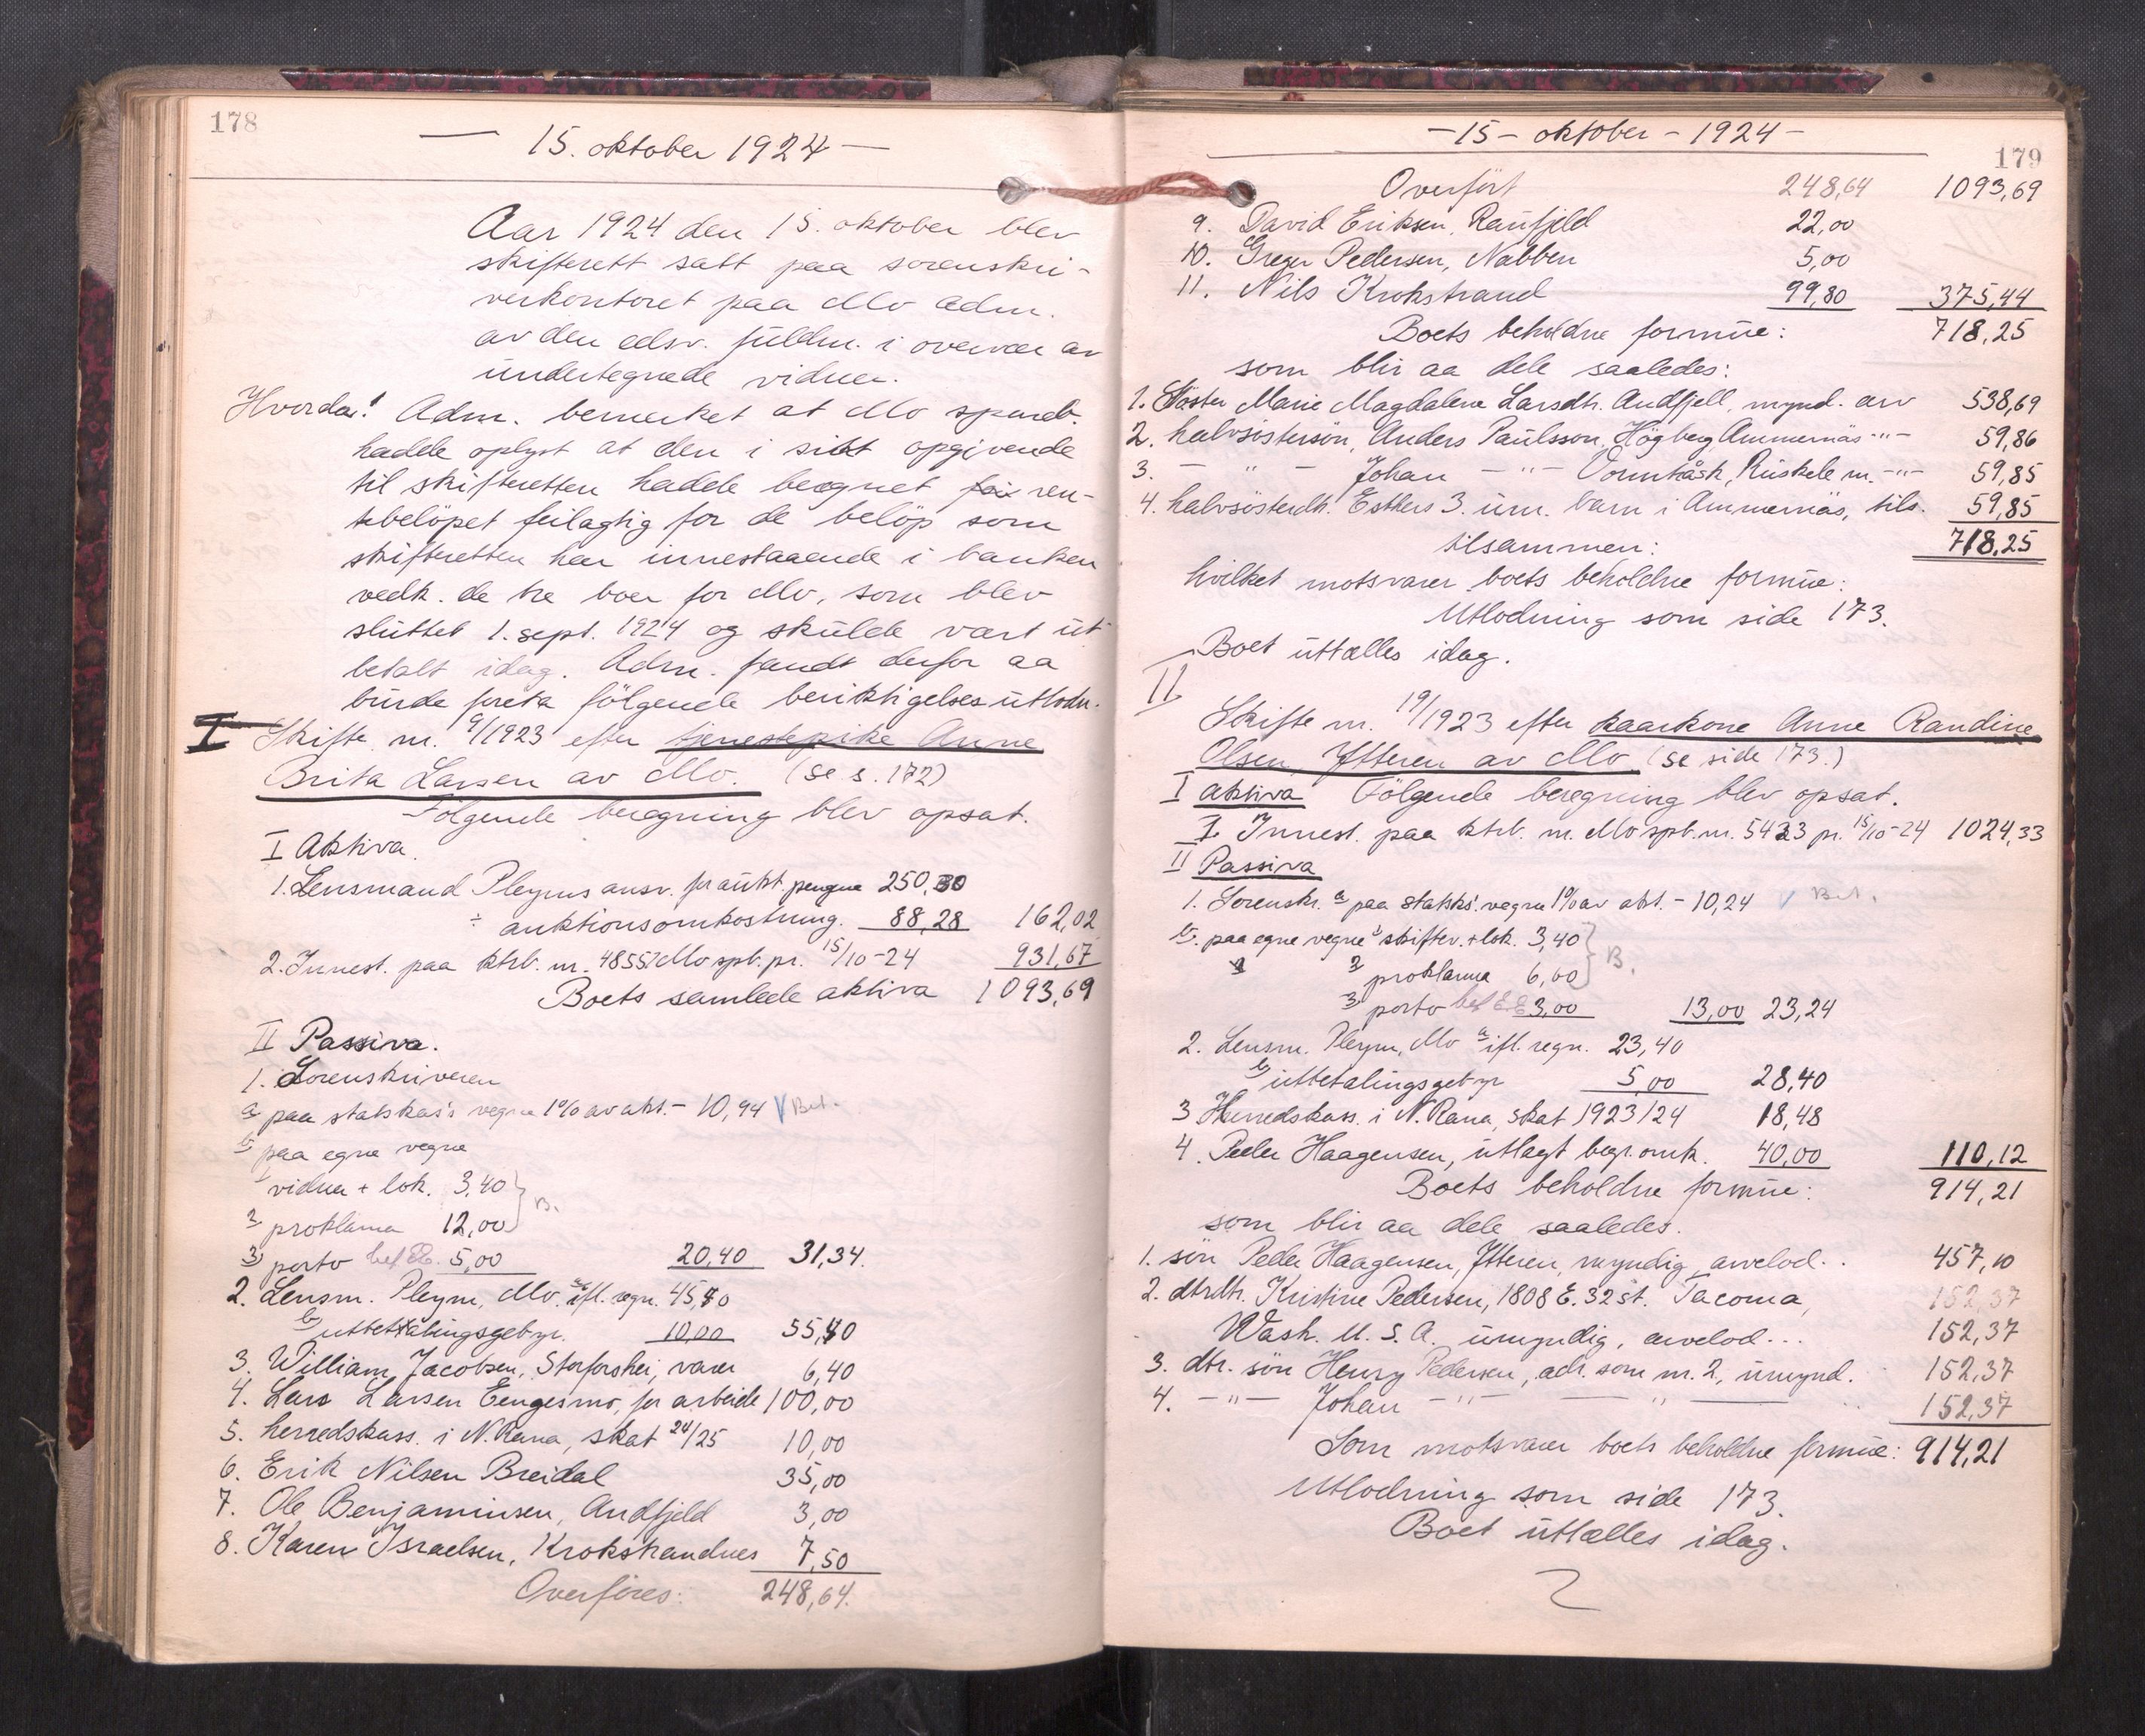 178
— 15. oktober 1924 —
Aar 1924 den 15. oktober blev
skifterett satt paa sorenskri-
verkontoret paa Mo adm.
av den edsv. fuldm. i overvær av
undertegnede vidner.
Hvorda! Adm. bemerket at Mo spareb.
hadde oplyst at den i sitt opgivende
til skifteretten hadde beregnet ren-
tebelöpet feilagtig for de belöp som
skifteretten har innestaaende i banken
vedk. de tre boer for Mo, som blev
sluttet 1. sept. 1924 og skulde vært ut-
betalt idag. Adm. fandt derfor aa
burde foreta fölgende beriktigelsesutlodn.
I Skifte nr. 9/1923 efter tjenestepike Anne
Brita Larsen av Mo. (se s. 172)
Fölgende beregning blev opsat.
I Aktiva.
1. Lensmand Pleyms ansv. for aukt. pengene 250,30
÷ auktionsomkostning. 88,28 162,02
2. Innest. paa ktrb. nr. 4855 Mo spb. pr. 15/10-24 931,67
Boets samlede aktiva 1093,69
II Passiva.
1. Sorenskriveren
a paa statskas's vegne 1% av akt. - 10,94 Bet.
b paa egne vegne
1 vidner + lok. 3,40
2 proklama 12,00 B.
3) porto bet 5,00 20,40 31,34.
2. Lensm. Pleym, Mo. a ifl. regn. 45,40
b utbetalingsgebyr. 10,00 55,40
3. William Jacobsen, Storforshei, varer 6,40
4. Lars Larsen Eengesmo, for arbeide 100,00
5. herredskass. i N. Rana, skat 24/25 10,00
6. Erik Nilsen Breidal 35,00
7. Ole Benjaminsen, Andfjeld 3,00
8. Karen Israelsen, Krokstrandnes 7,50
Overföres: 248,64.
— 15 – oktober – 1924 —
179
Overfört 248,64 1093,69
9. David Eriksen, Raufjeld 22,00
10. Greger Pedersen, Nabben 5,00
11. Nils Krokstrand 99,80 375,44
Boets beholdne formue: 718,25
som blir aa dele saaledes:
1. Söster Marie Magdalene Larsdtr. Andfjell, mynd. arv 538,69
2. halvsöstersön, Anders Paulsson, Högberg, Ammernäs -"- 59,86
3. — " — Johan — " — Vormtråsk, Ruskele m. -"- 59,85
4. halvsösterdtr. Esthers 3. um. barn i Ammernäs, tils. 59,85
tilsammen: 718,25
hvilket motsvarer boets beholdne formue:
Utlodning som side 173.
Boet uttælles idag.
II
Skifte nr. 19/1923 efter kaarkone Anne Randine
Olsen, Ytteren av Mo (se side 173.)
I aktiva Fölgende beregning blev opsat.
1. Innest. paa ktrb. nr. Mo spb. nr. 5423 pr. 15/10-24 1024,33
II Passiva
1. Sorenskr. a paa statsk's vegne 1% av akt. - 10,24 Bet.
b. paa egne vegne 1 skiftev. + lok. 3,40
2 proklama 6,00 B.
3 porto bet 3,00 13,00 23,24
2. Lensm. Pleym, Mo a ifl. regn. 23,40
b utbetalingsgebyr 5,00 28,40
3 Herredskass. i N. Rana, skat 1923/24 18,48
4. Peder Haagensen, utlagt begr. omk. 40,00 110,12
Boets beholdne formue: 914,21
som blir aa dele saaledes.
1. sön Peder Haagensen, Ytteren, myndig, arvelod. . 457,10
2. dtrdtr. Kristine Pedersen, 1808 E. 32 st. Tacoma, 152,37
Wash. U.S.A. umyndig, arvelod... 152,37
3. dtr. sön Henry Pedersen, adr. som nr. 2, umynd. 152,37
4. —"— Johan —"— " — 152,37
Som motsvarer boets beholdne formue: 914,21
Utlodning som side 173.
Boet uttælles idag.